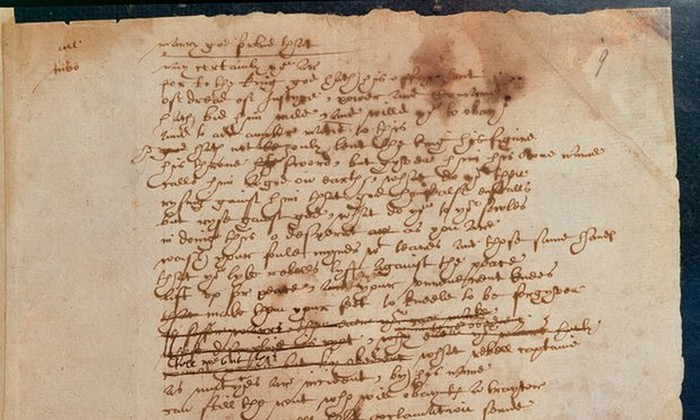 all marry god forbid that
moo nay certainly you ar
for to the king god hath his offyc lent
of dread of Iustyce, power and Comaund
hath bid him rule, and willd you to obay
and to add ampler matie to this
he hath not only lent the king his figure
his throne sword, but gyven him his owne name
calls him a god on earth, what do you then
rysing gainst him that god himsealf enstalls
but ryse gainst god, what do you to yor sowles
in doing this o desperat as you are
wash your foule mynds wt teares and those same handes
that you lyke rebells lyft against the peace
lift vp for peace, and your vnreuerent knees
make them your feet to kneele to be forgyven
is safer warrs, then euer you can make
whose discipline is ryot, why euen hurly
but by obedienc what rebell captaine
as mutynes ar incident, by his name
can still the rout who will obay a traytor
proclamation sounde
9